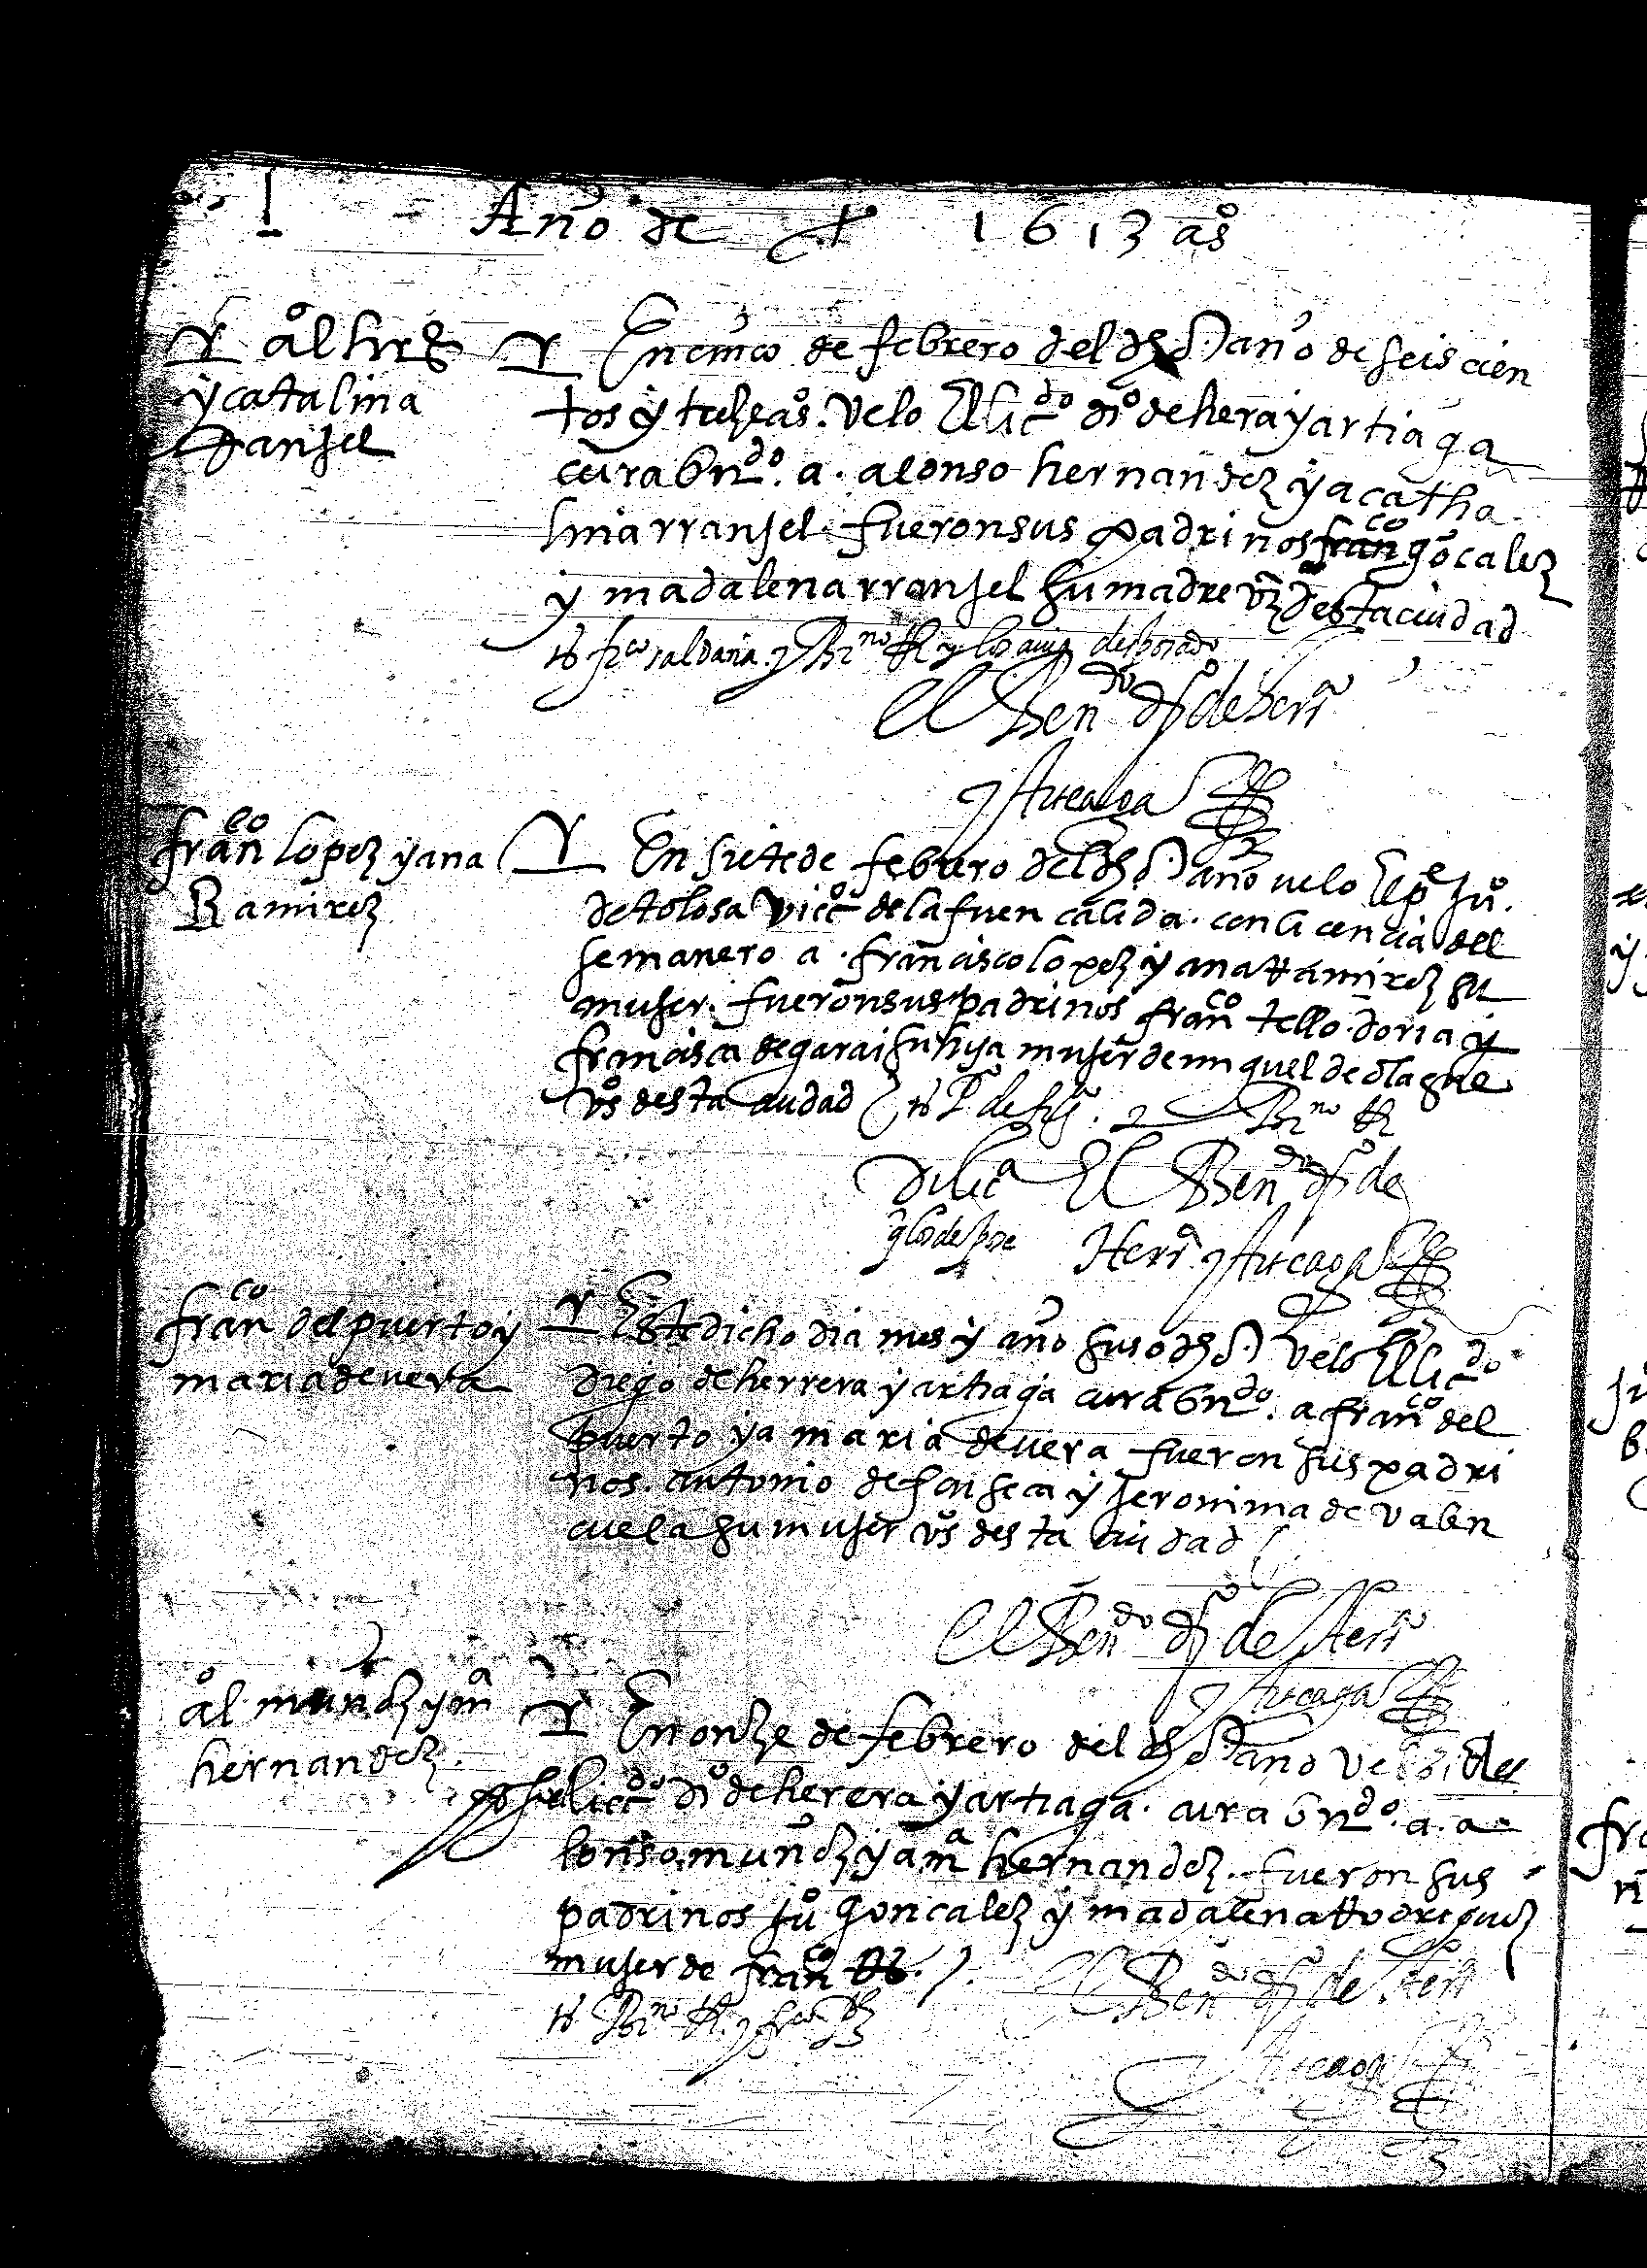 Año de 1613 as
al hrs
y catalina
Ranjel
En cinco de febrero del dho año de seis cien
tos y trese as. Velo El licdo dio de hera y artiaga
cura bndo. a. alonso hernandez y a catha
lina rranjel. fueron sus padrinos franco gocalez
y madalena rranjel su madre vz desta ciudad
to frco saldaña y
El Bendo do de herra
y Arteaga
franco lopez y ana
Ramirez
En siete de febrero del dho año velo El pe ju.
de tolosa de la fuen calida. con licencia del
semanero a. francisco lopez y ana rramirez su
mujer. fueron sus padrinos franco tello. doria y
francisca de garai su hija mujer de miguel de olague
vs desta ciudad
El Bendo do de
Herra y Arteaga
franco del puerto y
maria de uera
Este dicho dia mes y año suso dho velo El licdo
Diego de herrera y artiaga cura bndo. a franco del
puerto y a maria de uera fueron sus padri
nos. antonio de fonseca y jeronima de valen
cuela su mujer vs desta ciudad
El Bendo do de Herra
y Arteaga
al. muñoz y ma
hernandez.
En onze de febrero del dho año
el licdo dio de herera y artiaga. cura bndo. a. a
lonso muñoz y a ma hernandez. fueron sus
padrinos ju goncalez y madalena rrodriguez
mujer de franco
El Bendo do de Herra
Arteaga